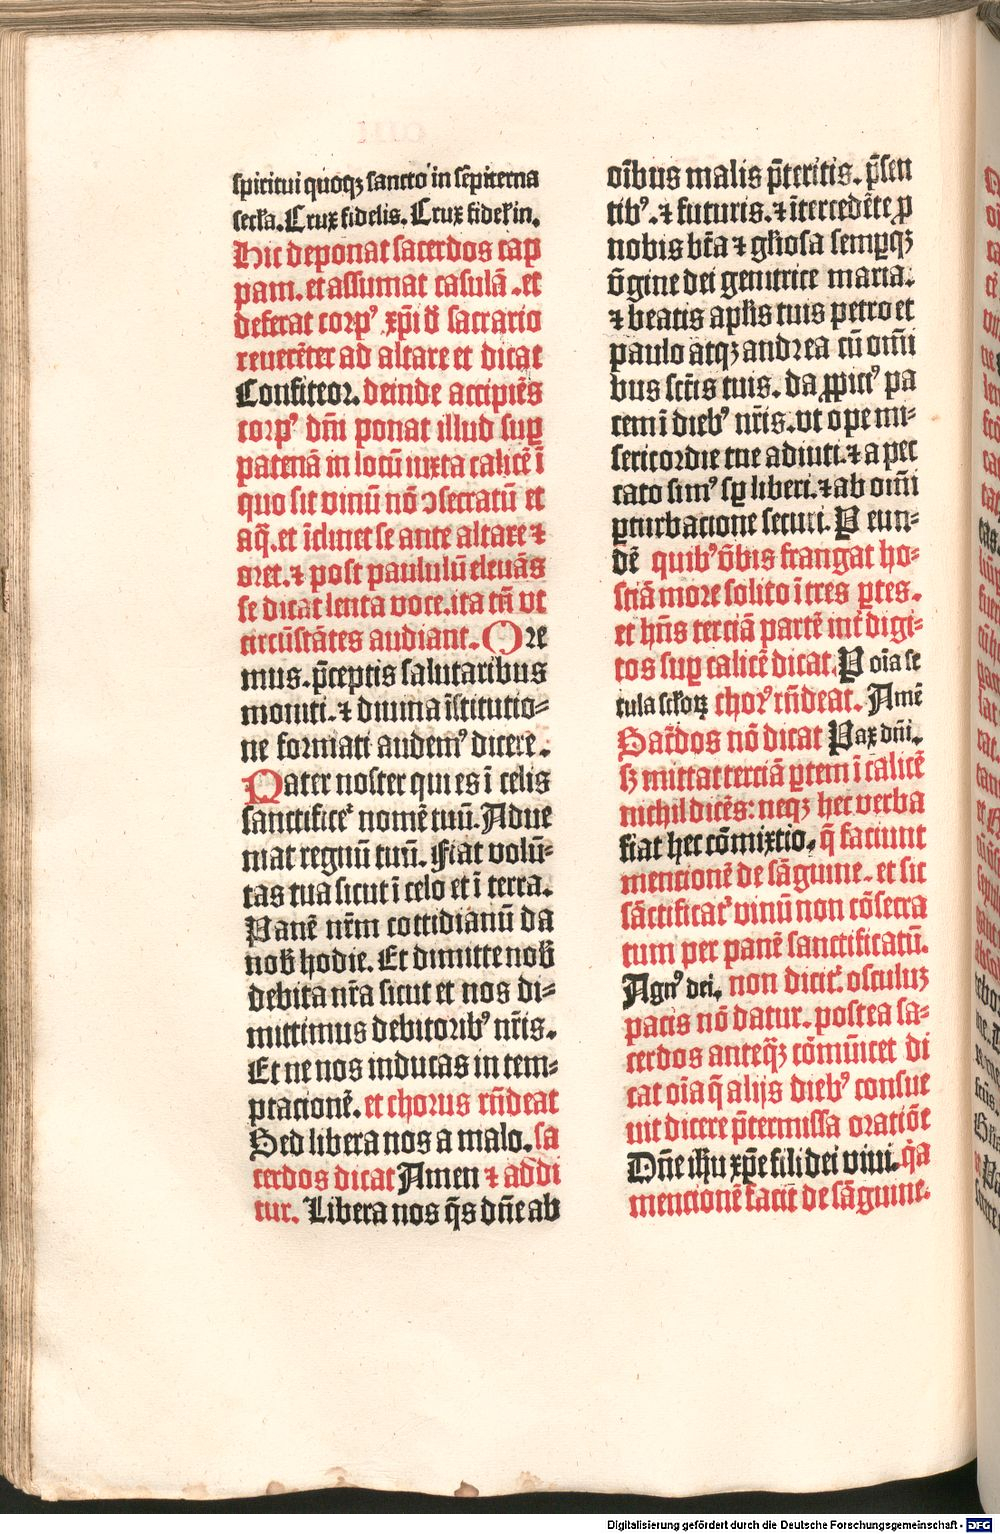 spiritui quoqʒ sancto in sēpiterna
secła. Crux fidelis. Crux fideł in.
Hic deponat sacerdos cap
pam. et assumat casulā. et
deferat corpꝰ xp̄i d̄ sacrario
reuerēter ad altare et dicat
Confiteor. deinde accipiēs
corpꝰ dn̄i ponat illud suꝑ
patenā in locū iuxta calicē ī
quo sit vinū nō ↄsecratū et
aq̄. et īclinet se ante altare ⁊
oret. ⁊ post paululū eleuās
se dicat lenta voce. ita tn̄ vt
circūstātes audiant. Ore
mus. p̄ceptis salutaribus
moniti. ⁊ diuina īstitutio⸗
ne formati audemꝰ dicere.
Pater noster qui es ī celis
sanctificeᷣ nomē tuū. Adue
mat regnū tuū. Fiat volū⸗
tas tua sicut ī celo et ī terra.
Panē nr̄m cottidianū da
nob̄ hodie. Et dimitte nob̄
debita nr̄a sicut et nos di⸗
mittimus debitoribꝰ nr̄is.
Et ne nos inducas in tem⸗
ptacionē. et chorus rn̄deat
Sed libera nos a malo. sa
cerdos dicat Amen ⁊ addi
tur. Libera nos q̄s dn̄e ab
oībus malis p̄teritis. p̄sen
tibꝰ. ⁊ futuris. ⁊ ītercedēte ꝓ
nobis bt̄a ⁊ gl̄iosa semꝑqʒ
v̄gine dei genitrice maria.
⁊ beatis apl̄is tuis petro et
paulo atqʒ andrea cū om̄i
bus sct̄is tuis. da ꝓpiciꝰ pa
cem ī diebꝰ nr̄is. vt ope mi⸗
sericordie tue adiuti. ⁊ a pec
cato simꝰ sꝑ liberi. ⁊ ab om̄i
ꝑturbacione securi. P eun⸗
dē quibꝰ v̄bis frangat ho⸗
stiā more solito ī tres ꝑtes.
et hn̄s terciā partē int̄ digi⸗
tos suꝑ calicē dicat. P oīa se
cula scłoꝝ chorꝰ rn̄deat. Amē
Sac̄dos nō dicat Pax dn̄i.
sʒ mittat terciā ꝑtem ī calicē
nichil dicēs: neqʒ hec verba
fiat hec cōmixtio. q̄ faciunt
mencionē de sāguine. et sic
sāctificatᷣ vinū non cōsecra
tum per panē sanctificatū.
Agnꝰ dei. non diciᷣt osculuʒ
pacis nō datur. postea sa⸗
cerdos anteq̄ʒ cōmūicet di
cat oīa q̄ alijs diebꝰ consue
uit dicere p̄termissa oratiōe
Dn̄e ih̄u xp̄e fili dei viui. q̄a
mencionē facit de sāguine.
Digitalisierung gefördert durch die Deutsche Forschungsgemeinschaft - DFG